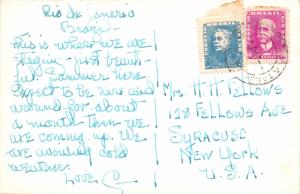 Rio de Janeiro
Brazil
This is where we are
staying - just beauti-
ful Summer here
Expect to be here and
around for about
a month Then we
are coming up. We
are avoiding cold
weather.
Love C
BRASIL
Mrs. H. H. Fellows
128 Fellows Ave
Syracuse
New York
U.S.A.